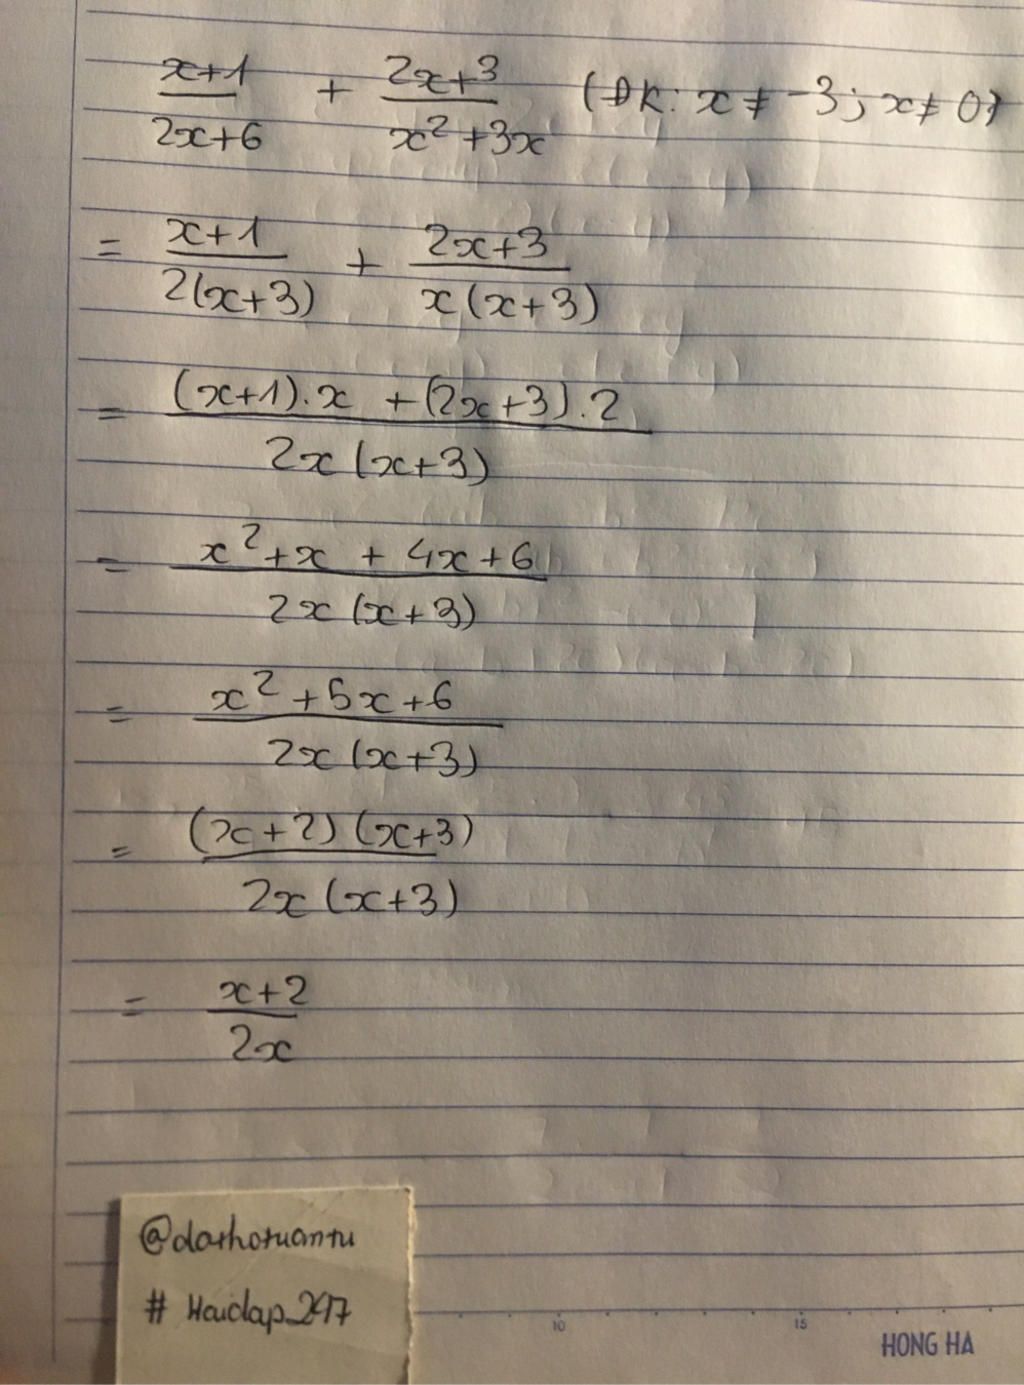 x+1/2x+6 + 2x+3/x²+3x (ĐK: x ≠ -3; x ≠ 0)
= x+1/2(x+3) + 2x+3/x(x+3)
= (x+1).x + (2x+3).2/2x(x+3)
= x²+x + 4x+6/2x(x+3)
= x²+5x+6/2x(x+3)
= (x+2)(x+3)/2x(x+3)
= x+2/2x
@dathotuantu
# Haidap_247
10 15
HONG HA